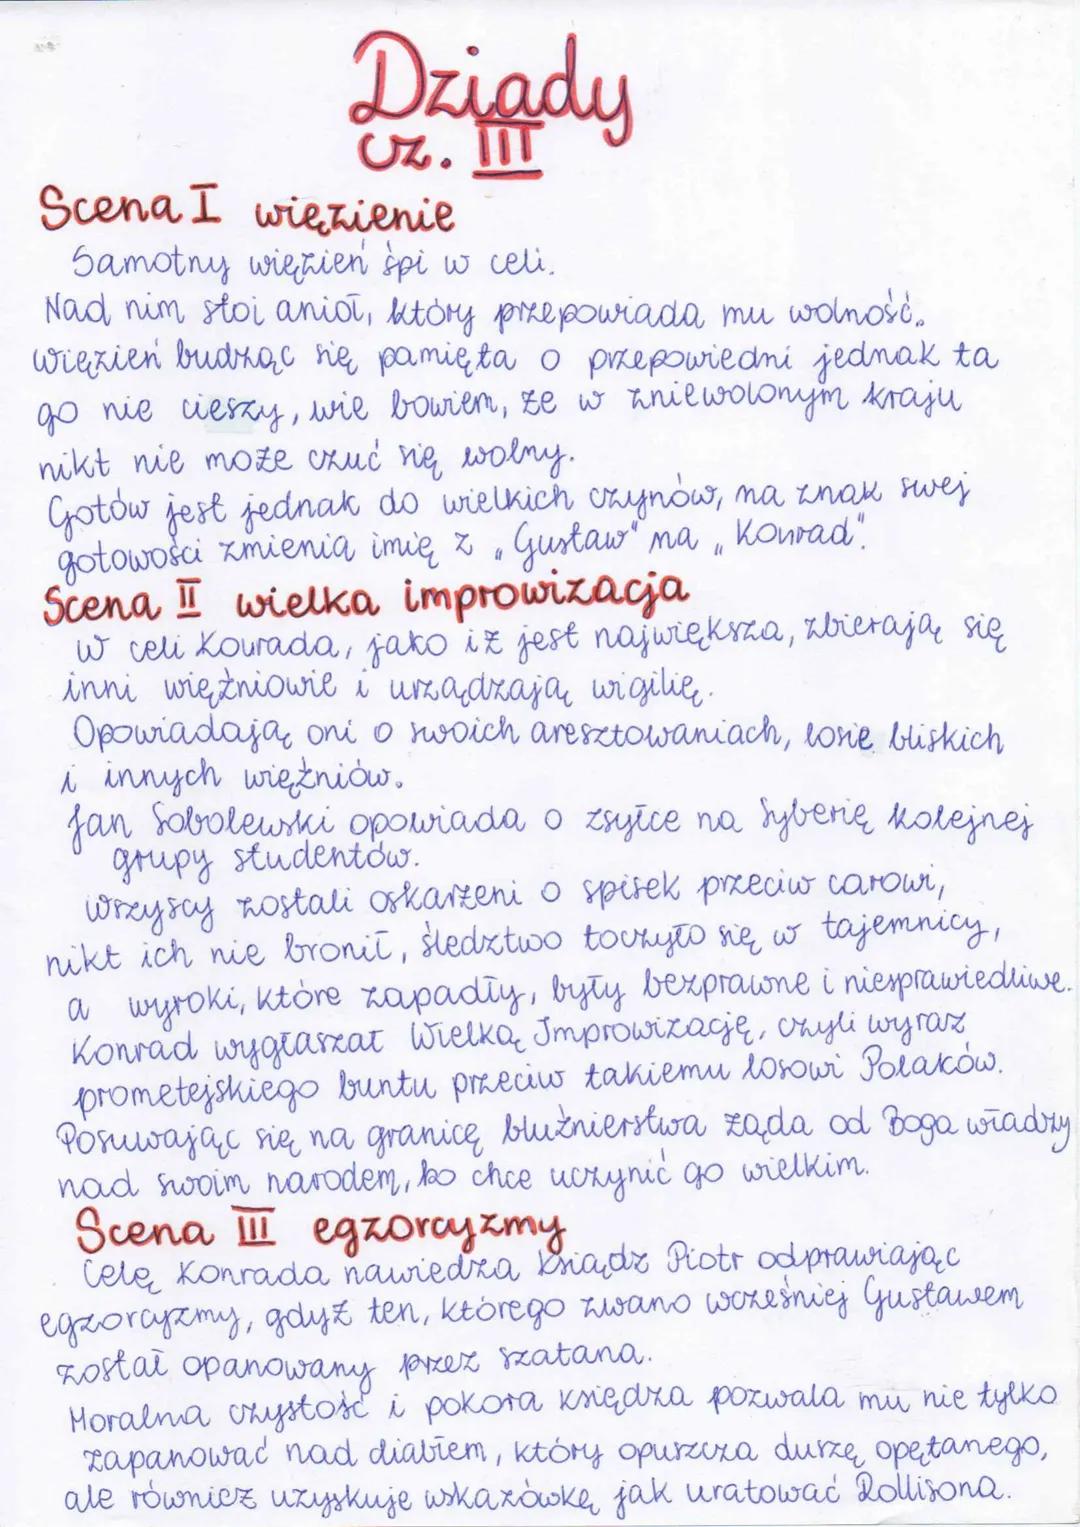 Dziady
cz. III
Scena I więzienie
Samotny więzień śpi w celi.
Nad nim stoi anioł, który przepowiada mu wolność.
więzień budząc się pamięta o przepowiedni jednak ta
go nie cieszy, wie bowiem, że w zniewolonym kraju
nikt nie może czuć się wolny.
Gotów jest jednak do wielkich czynów, na znak swej
gotowości zmienia imię z „Gustaw" na „Konrad".
Scena II wielka improwizacja
W celi Konrada, jako iż jest największa, zbierają się
inni więźniowie i urządzają wigilię.
Opowiadają oni o swoich aresztowaniach, losie bliskich
i innych więźniów.
Jan Sobolewski opowiada o zsyłce na Syberię kolejnej
grupy studentów.
Wszyscy zostali oskarżeni o spisek przeciw carowi,
nikt ich nie bronił, śledztwo toczyło się w tajemnicy,
a wyroki, które zapadły, były bezprawne i niesprawiedliwe.
Konrad wygłaszał Wielką Improwizację, czyli wyraz
prometejskiego buntu przeciw takiemu losowi Polaków.
Posuwając się na granicę bluźnierstwa żąda od Boga władzy
nad swoim narodem, bo chce uczynić go wielkim.
Scena III egzorcyzmy
Celę Konrada nawiedza Ksiądz Piotr odprawiając
egzorcyzmy, gdyż ten, którego zwano wcześniej Gustawem
został opanowany przez szatana.
Moralna czystość i pokora księdza pozwala mu nie tylko
zapanować nad diabłem, który opuszcza duszę opętanego,
ale również uzyskuje wskazówkę jak uratować Rollisona.